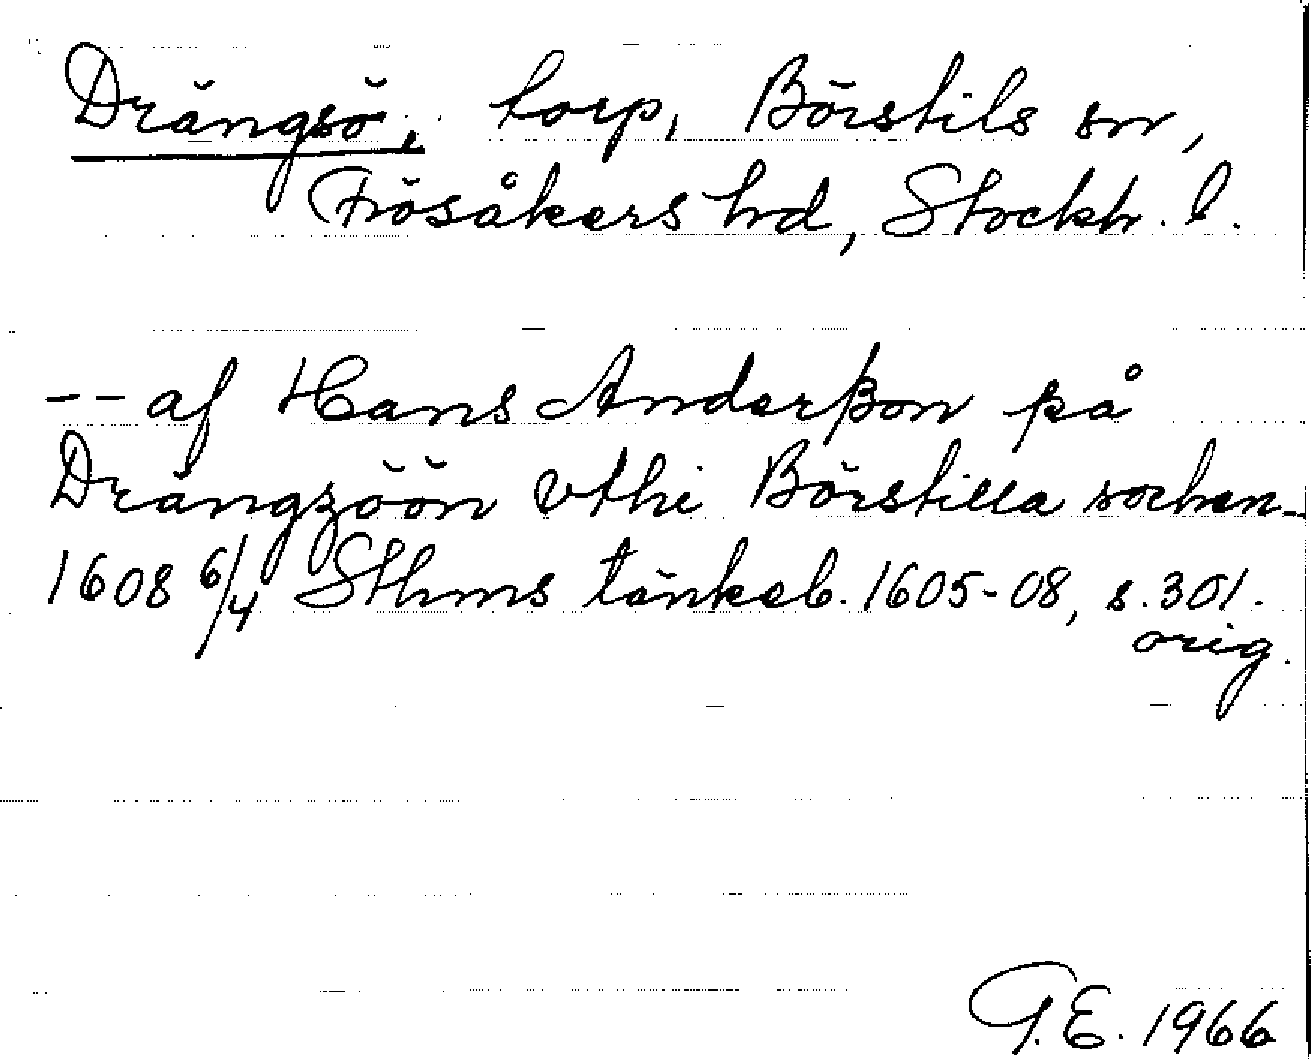 Drängsö, torp, Börstils sn,
Frösåkers hd, Stockh. l.
-- af Hans Anderßon på
Drängzöön vthi Börstilla sochen-
1608 6/4 Sthms tänkeb. 1605-08, s. 301.
orig.
G.E. 1966